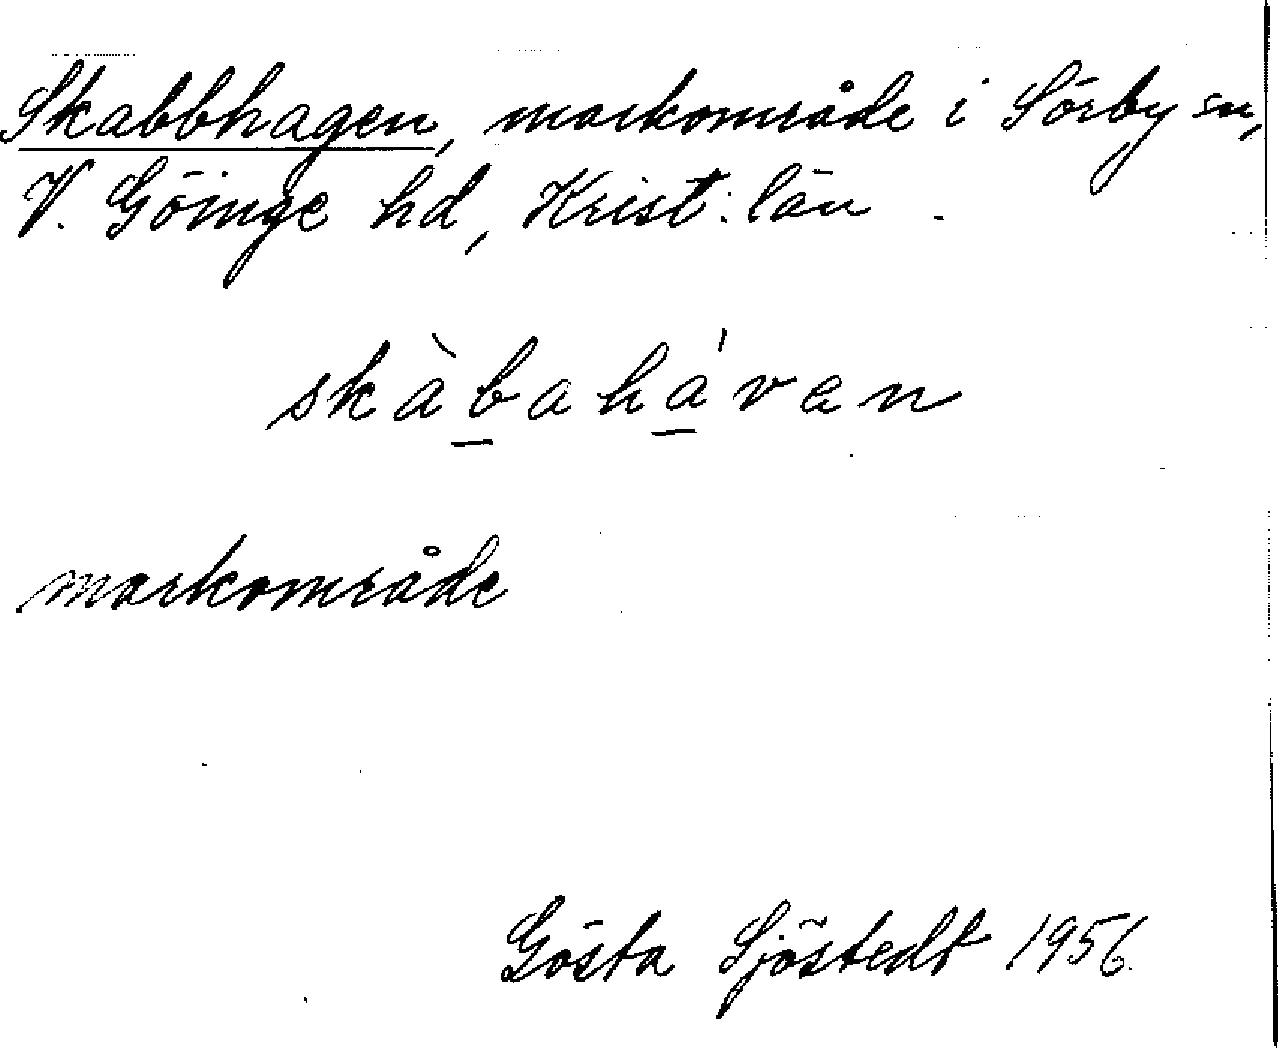 Skabbhagen, markområde i Sörby sn,
V. Göinge hd, Krist. län
skàb̲ahá̲van
markområde
Gösta Sjöstedt 1956.